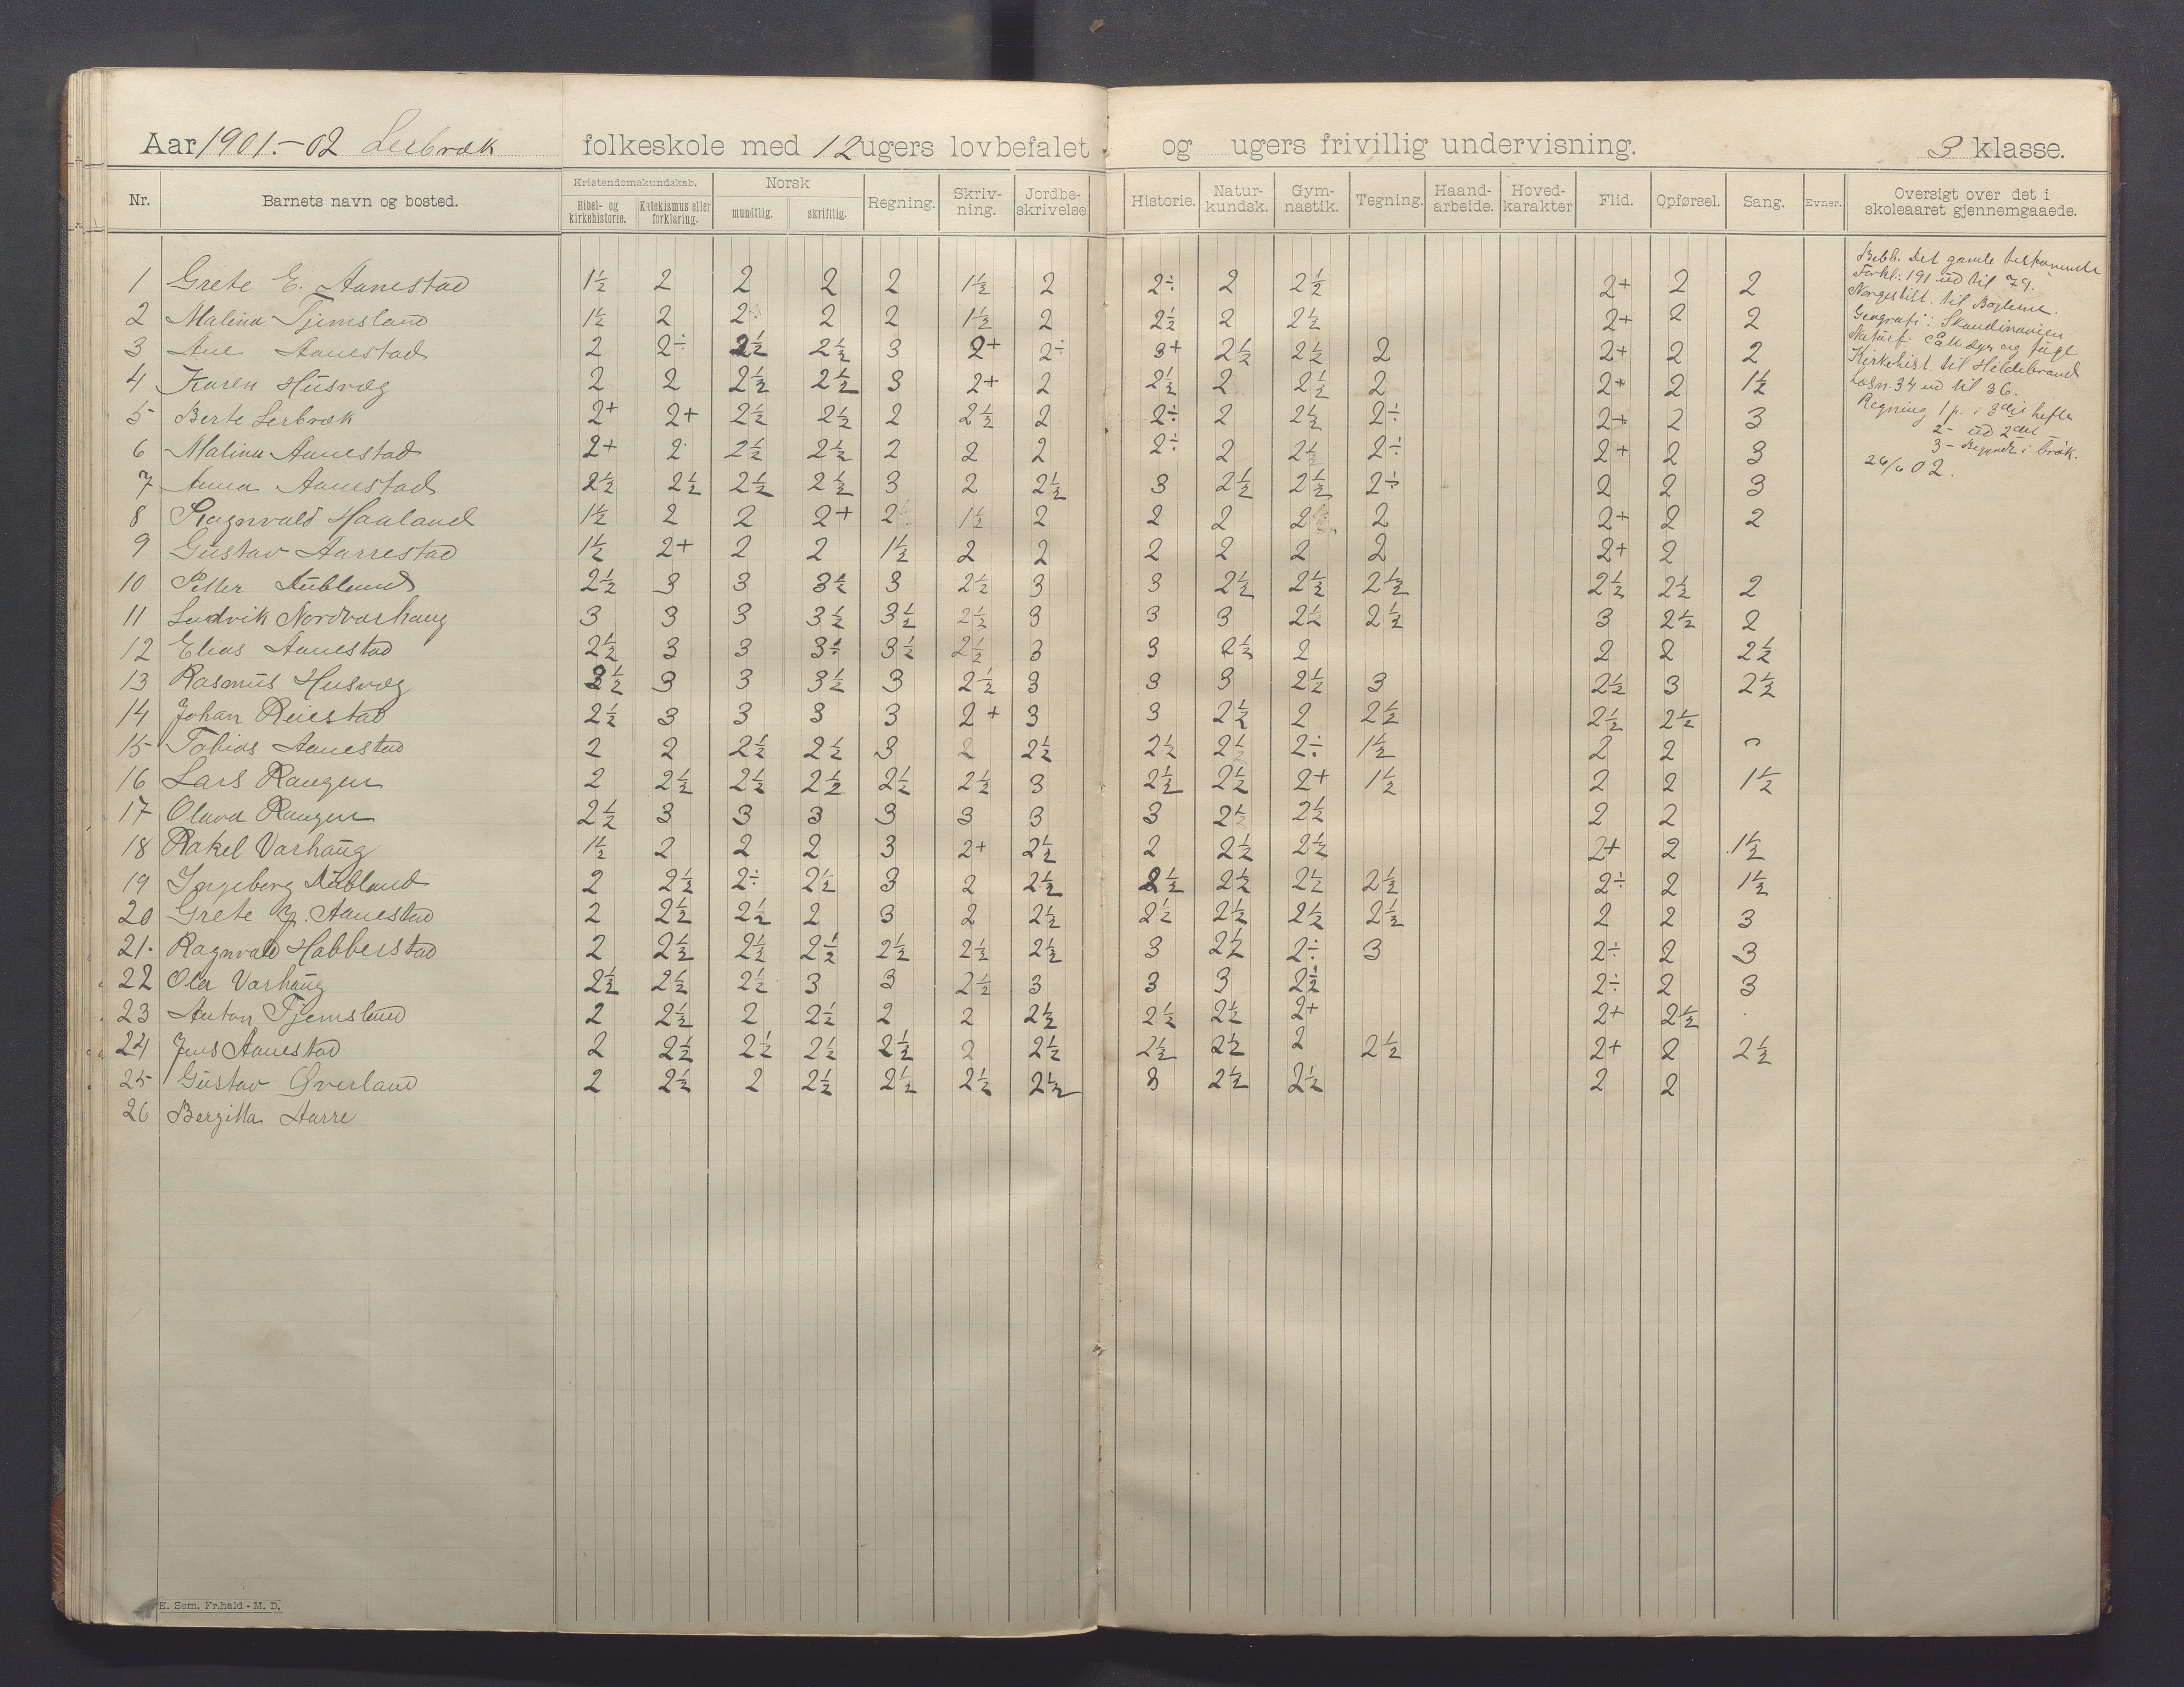 Aar 1901.-02 Lerbræk folkeskole med 12 ugers lovbefalet og ugers frivillig undervisning. 3 klasse.
Nr. Barnets navn og bosted. Kristendomskundskab. Bibel- og kirkehistorie. Katekismus eller forklaring. Norsk mundtlig. skriftlig. Regning. Skriv-ning. Jordbe-skrivelse Historie. Natur-kundsk. Gym-nastik. Tegning. Haand-arbeide. Hoved-karakter Flid. Opførsel. Sang. Evner. Oversigt over det i skoleaaret gjennemgaaede.
1 Grete E. Aanestad 1½ 2 2 2 2 1½ 2 2÷ 2 2½ 2+ 2 2
2 Malina Tjemsland 1½ 2 2 2 2 1½ 2 2½ 2 2½ 2+ 2 2
3 Ane Aanestad 2 2÷ 2½ 2½ 3 2+ 2÷ 3+ 2½ 2½ 2 2+ 2 2
4 Karen Husvæg 2 2 2½ 2½ 3 2+ 2 2½ 2 2½ 2 2+ 2 1½
5 Berte Lerbræk 2+ 2+ 2½ 2½ 2 2½ 2 2÷ 2 2½ 2÷ 2+ 2 3
6 Malina Aanestad 2+ 2 2½ 2½ 2 2 2 2÷ 2 2½ 2÷ 2+ 2 3
7 Anna Aanestad 2½ 2½ 2½ 2½ 3 2 2½ 3 2½ 2½ 2÷ 2 2 3
8 Ragnvald Haaland 1½ 2 2 2+ 2 1½ 2 2 2 2 2 2+ 2 2
9 Gustav Aarrestad 1½ 2+ 2 2 1½ 2 2 2 2 2 2 2+ 2
10 Petter Dubland 2½ 3 3 3½ 3 2½ 3 3 2½ 2½ 2½ 2½ 2½ 2
11 Ludvik Nordvarhaug 3 3 3 3½ 3½ 2½ 3 3 3 2½ 2½ 3 2½ 2
12 Elias Aanestad 2½ 3 3 3÷ 3½ 2½ 3 3 2½ 2 2 2 2½
13 Rasmus Husvæg 3½ 3 3 3½ 3 2½ 3 3 3 2½ 3 2½ 3 2½
14 Johan Reiestad 2½ 3 3 3 3 2+ 3 3 2½ 2 2½ 2½ 2½
15 Tobias Aanestad 2 2 2½ 2½ 3 2 2½ 2½ 2½ 2÷ 1½ 2 2
16 Lars Raugen 2 2½ 2½ 2½ 2½ 2½ 3 2½ 2½ 2+ 1½ 2 2 1½
17 Olava Raugen 2½ 3 3 3 3 3 3 3 2½ 2½ 2 2
18 Rakel Varhaug 1½ 2 2 2 3 2+ 2½ 2 2½ 2½ 2+ 2 1½
19 Ingeborg Dubland 2 2½ 2÷ 2½ 3 2 2½ 2½ 2½ 2½ 2½ 2÷ 2 1½
20 Grete Aanestad 2 2½ 2½ 2 3 2 2½ 2½ 2½ 2½ 2½ 2 2 3
21. Ragnvald Habberstad 2 2½ 2½ 2½ 2½ 2½ 2½ 3 2½ 2÷ 3 2÷ 2 3
22 Ola Varhaug 2½ 2½ 2½ 3 3 2½ 3 3 3 2½ 2÷ 2 3
23 Anton Tjemsland 2 2½ 2 2½ 2 2 2½ 2½ 2½ 2+ 2+ 2½
24 Jens Aanestad 2 2½ 2½ 2½ 2½ 2 2½ 2½ 2½ 2 2½ 2+ 2 2½
25 Gustav Øverland 2 2½ 2 2½ 2½ 2½ 2½ 3 2½ 2½ 2 2
26 Bergitta Aarre
Bebh. Det gamle testamente
Forkl: 191 ud til 79.
Norgeshist. til Baglerne.
Geografi: Skandinavien
Naturf: Pattedyr og fugl
Kirkehist. til Hildebrand
Læsn. 34 ud til 36.
Regning 1 p. i 3die hefte
2 - ud 2det
3 - Begyndt i brøk.
26/6 02.
E. Sem, Fr.hald - M. D.